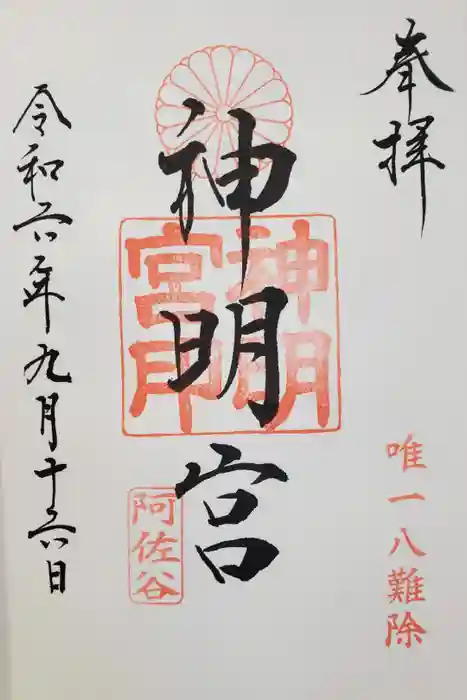 奉拝
唯一八難除
神明宮
神明
宮印
阿佐谷
令和六年九月十六日